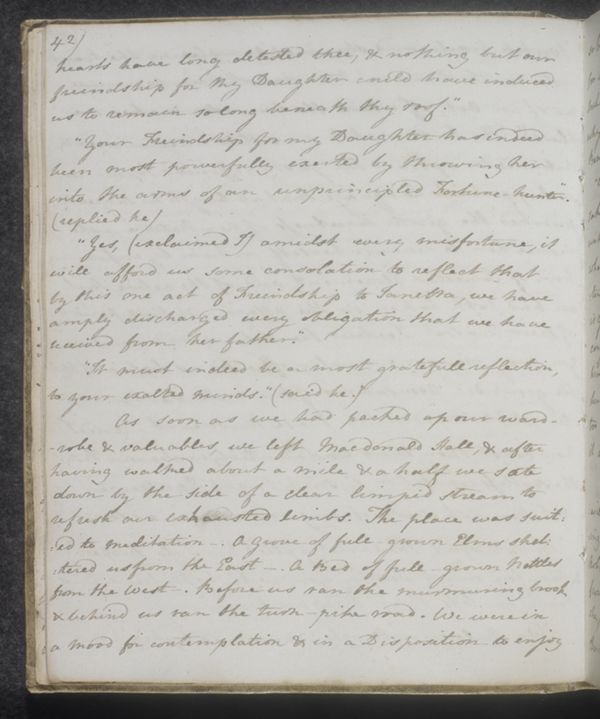 42)
hearts have long detested thee, & nothing but our
freindship for thy Daughter could have induced
us to remain so long beneath thy roof."
"Your Freindship for my Daughter has indeed
been most powerfully exerted by throwing her
into the arms of an unprincipled Fortune-hunter".
(replied he)
"Yes, (exclaimed I) amidst every misfortune, it
will afford us some consolation to reflect that
by this one act of Freindship to Janetta, we have
amply discharged every obligation that we have
received from her father."
"It must indeed be a most gratefull reflection,
to your exalted minds." (said he.)
As soon as we had packed up our ward-
-robe & valuables, we left Macdonald Hall, & after
having walked about a mile & a half we sate
down by the side of a clear limpid stream to
refresh our exhausted limbs. The place was suit:
:ed to meditation-. A Grove of full-grown Elms shel:
:tered us from the East-. A Bed of full-grown Nettles
from the West-. Before us ran the murmuring brook
& behind us ran the turn-pike road. We were in
a mood for contemplation & in a Disposition to enjoy